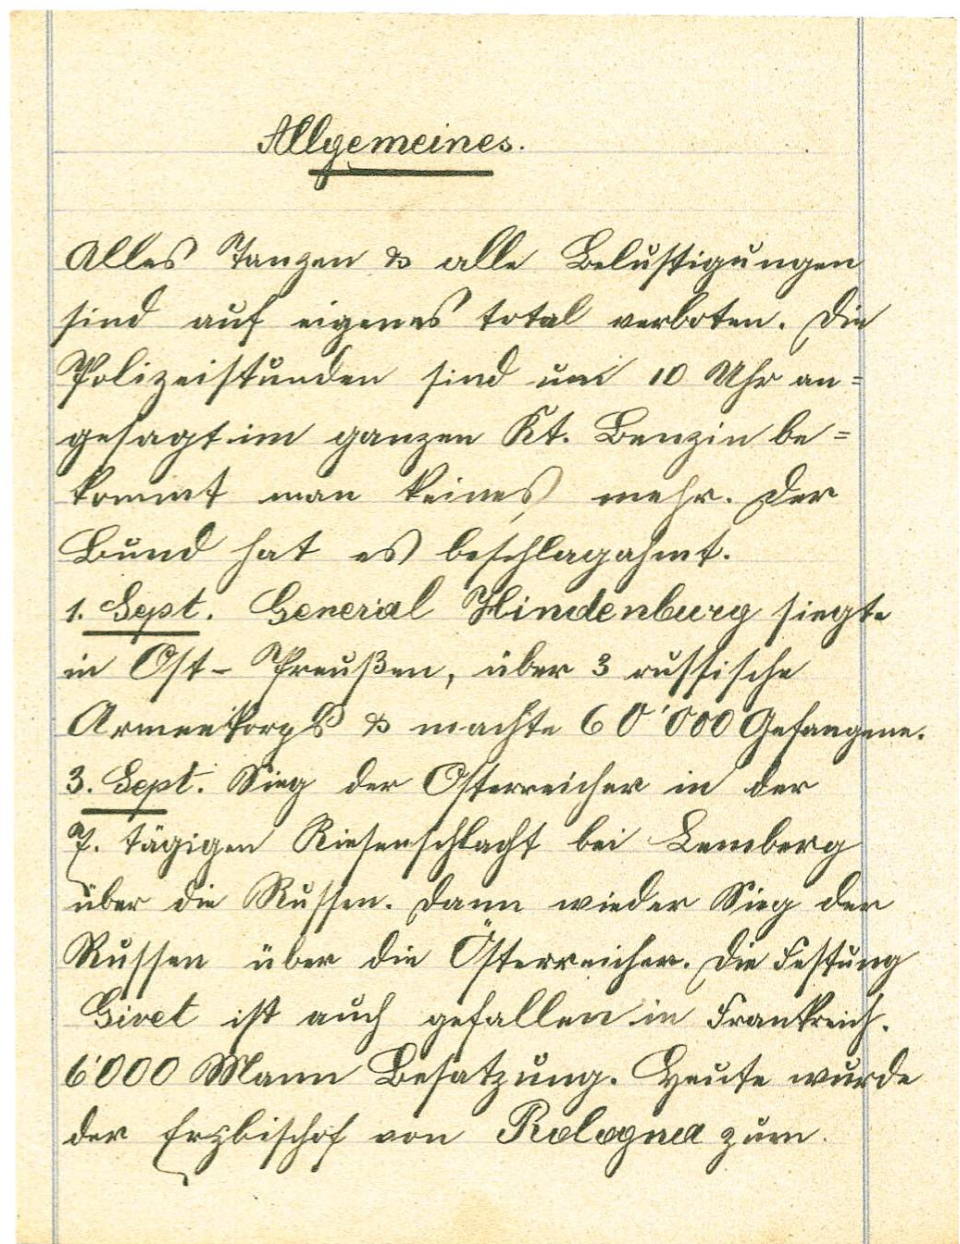 Allgemeines.
Alles Tanzen & alle Belustigungen
sind auf eigenes total verboten. Die
Polizeistunden sind um 10 Uhr an=
gesagt im ganzen Kt. Benzin be=
kommt man keines mehr. Der
Bund hat es beschlagahmt.
1. Sept. General Hindenburg siegte
in Ost- Preußen, über 3 russische
Armeekorps & machte 60'000 Gefangene.
3. Sept. Sieg der Österreicher in der
7. tägigen Riesenschlacht bei Lemberg
über die Russen. Dann wieder Sieg der
Russen über die Österreicher. Die Festung
Givet ist auch gefallen in Frankreich.
6'000 Mann Besatzung. Heute wurde
der Erzbischof von Bologna zum